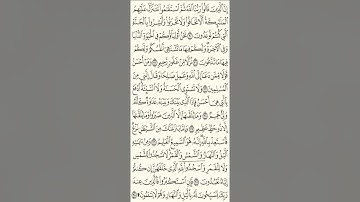 إِنَّ ٱلَّذِينَ قَالُوا۟ رَبُّنَا ٱللَّهُ ثُمَّ ٱسْتَقَٰمُوا۟ تَتَنَزَّلُ عَلَيْهِمُ
ٱلْمَلَٰٓئِكَةُ أَلَّا تَخَافُوا۟ وَلَا تَحْزَنُوا۟ وَأَبْشِرُوا۟ بِٱلْجَنَّةِ
ٱلَّتِى كُنتُمْ تُوعَدُونَ ٣٠ نَحْنُ أَوْلِيَآؤُكُمْ فِى ٱلْحَيَوٰةِ ٱلدُّنْيَا
وَفِى ٱلْءَاخِرَةِ وَلَكُمْ فِيهَا مَا تَشْتَهِىٓ أَنفُسُكُمْ وَلَكُمْ
فِيهَا مَا تَدَّعُونَ ٣١ نُزُلًا مِّنْ غَفُورٍ رَّحِيمٍ ٣٢ وَمَنْ أَحْسَنُ
قَوْلًا مِّمَّن دَعَآ إِلَى ٱللَّهِ وَعَمِلَ صَٰلِحًا وَقَالَ إِنَّنِى مِنَ
ٱلْمُسْلِمِينَ ٣٣ وَلَا تَسْتَوِى ٱلْحَسَنَةُ وَلَا ٱلسَّيِّئَةُ ٱدْفَعْ
بِٱلَّتِى هِىَ أَحْسَنُ فَإِذَا ٱلَّذِى بَيْنَكَ وَبَيْنَهُۥ عَدَٰوَةٌ كَأَنَّهُۥ
وَلِىٌّ حَمِيمٌ ٣٤ وَمَا يُلَقَّىٰهَآ إِلَّا ٱلَّذِينَ صَبَرُوا۟ وَمَا يُلَقَّىٰهَآ
إِلَّا ذُو حَظٍّ عَظِيمٍ ٣٥ وَإِمَّا يَنزَغَنَّكَ مِنَ ٱلشَّيْطَٰنِ نَزْغٌ
فَٱسْتَعِذْ بِٱللَّهِ إِنَّهُۥ هُوَ ٱلسَّمِيعُ ٱلْعَلِيمُ ٣٦ وَمِنْ ءَايَٰتِهِ
ٱلَّيْلُ وَٱلنَّهَارُ وَٱلشَّمْسُ وَٱلْقَمَرُ لَا تَسْجُدُوا۟ لِلشَّمْسِ
وَلَا لِلْقَمَرِ وَٱسْجُدُوا۟ لِلَّهِ ٱلَّذِى خَلَقَهُنَّ إِن كُنتُمْ
إِيَّاهُ تَعْبُدُونَ ٣٧ فَإِنِ ٱسْتَكْبَرُوا۟ فَٱلَّذِينَ عِندَ
رَبِّكَ يُسَبِّحُونَ لَهُۥ بِٱلَّيْلِ وَٱلنَّهَارِ وَهُمْ لَا يَسْـَٔمُونَ ۩ ٣٨